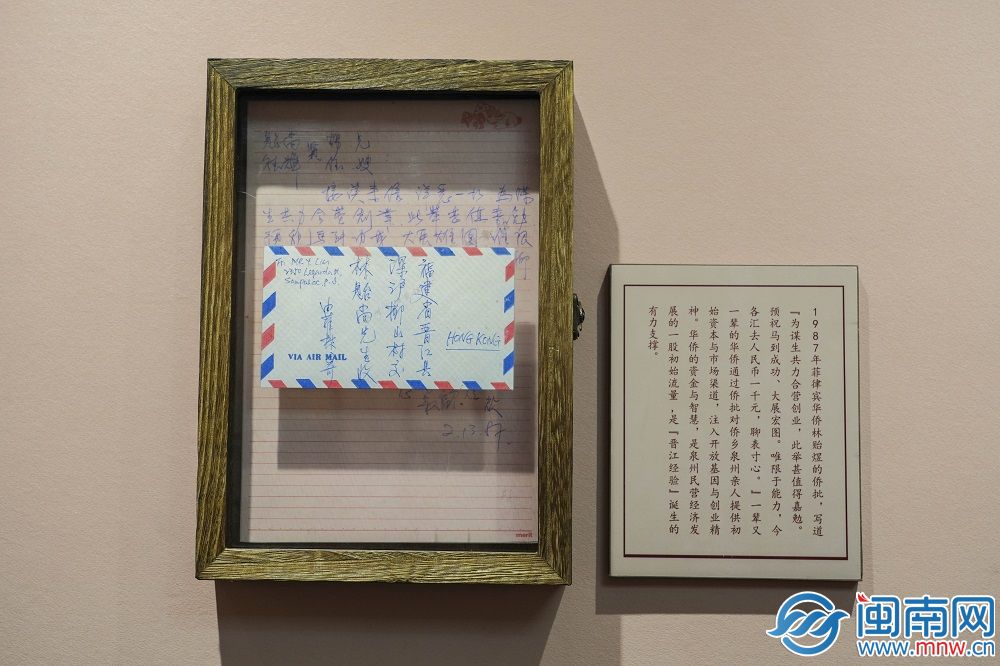 接读来信
为谋
生共力合营创业 此举甚值
大展雄图
2.13.87.
merit
Fr. MR. Y. Lim
Sampaloc
VIA AIR MAIL
HONG KONG
福建省晋江县
深沪柳山村交
林贻尚先生收
1987年菲律宾华侨林贻煜的侨批，写道
『为谋生共力合营创业，此举甚值得嘉勉。
预祝马到成功、大展宏图。唯限于能力，今
各汇去人民币一千元，聊表寸心。』一辈又
一辈的华侨通过侨批对侨乡泉州亲人提供初
始资本与市场渠道，注入开放基因与创业精
神。华侨的资金与智慧，是泉州民营经济发
展的一股初始流量，是『晋江经验』诞生的
有力支撑。
闽南网
www.mnw.cn